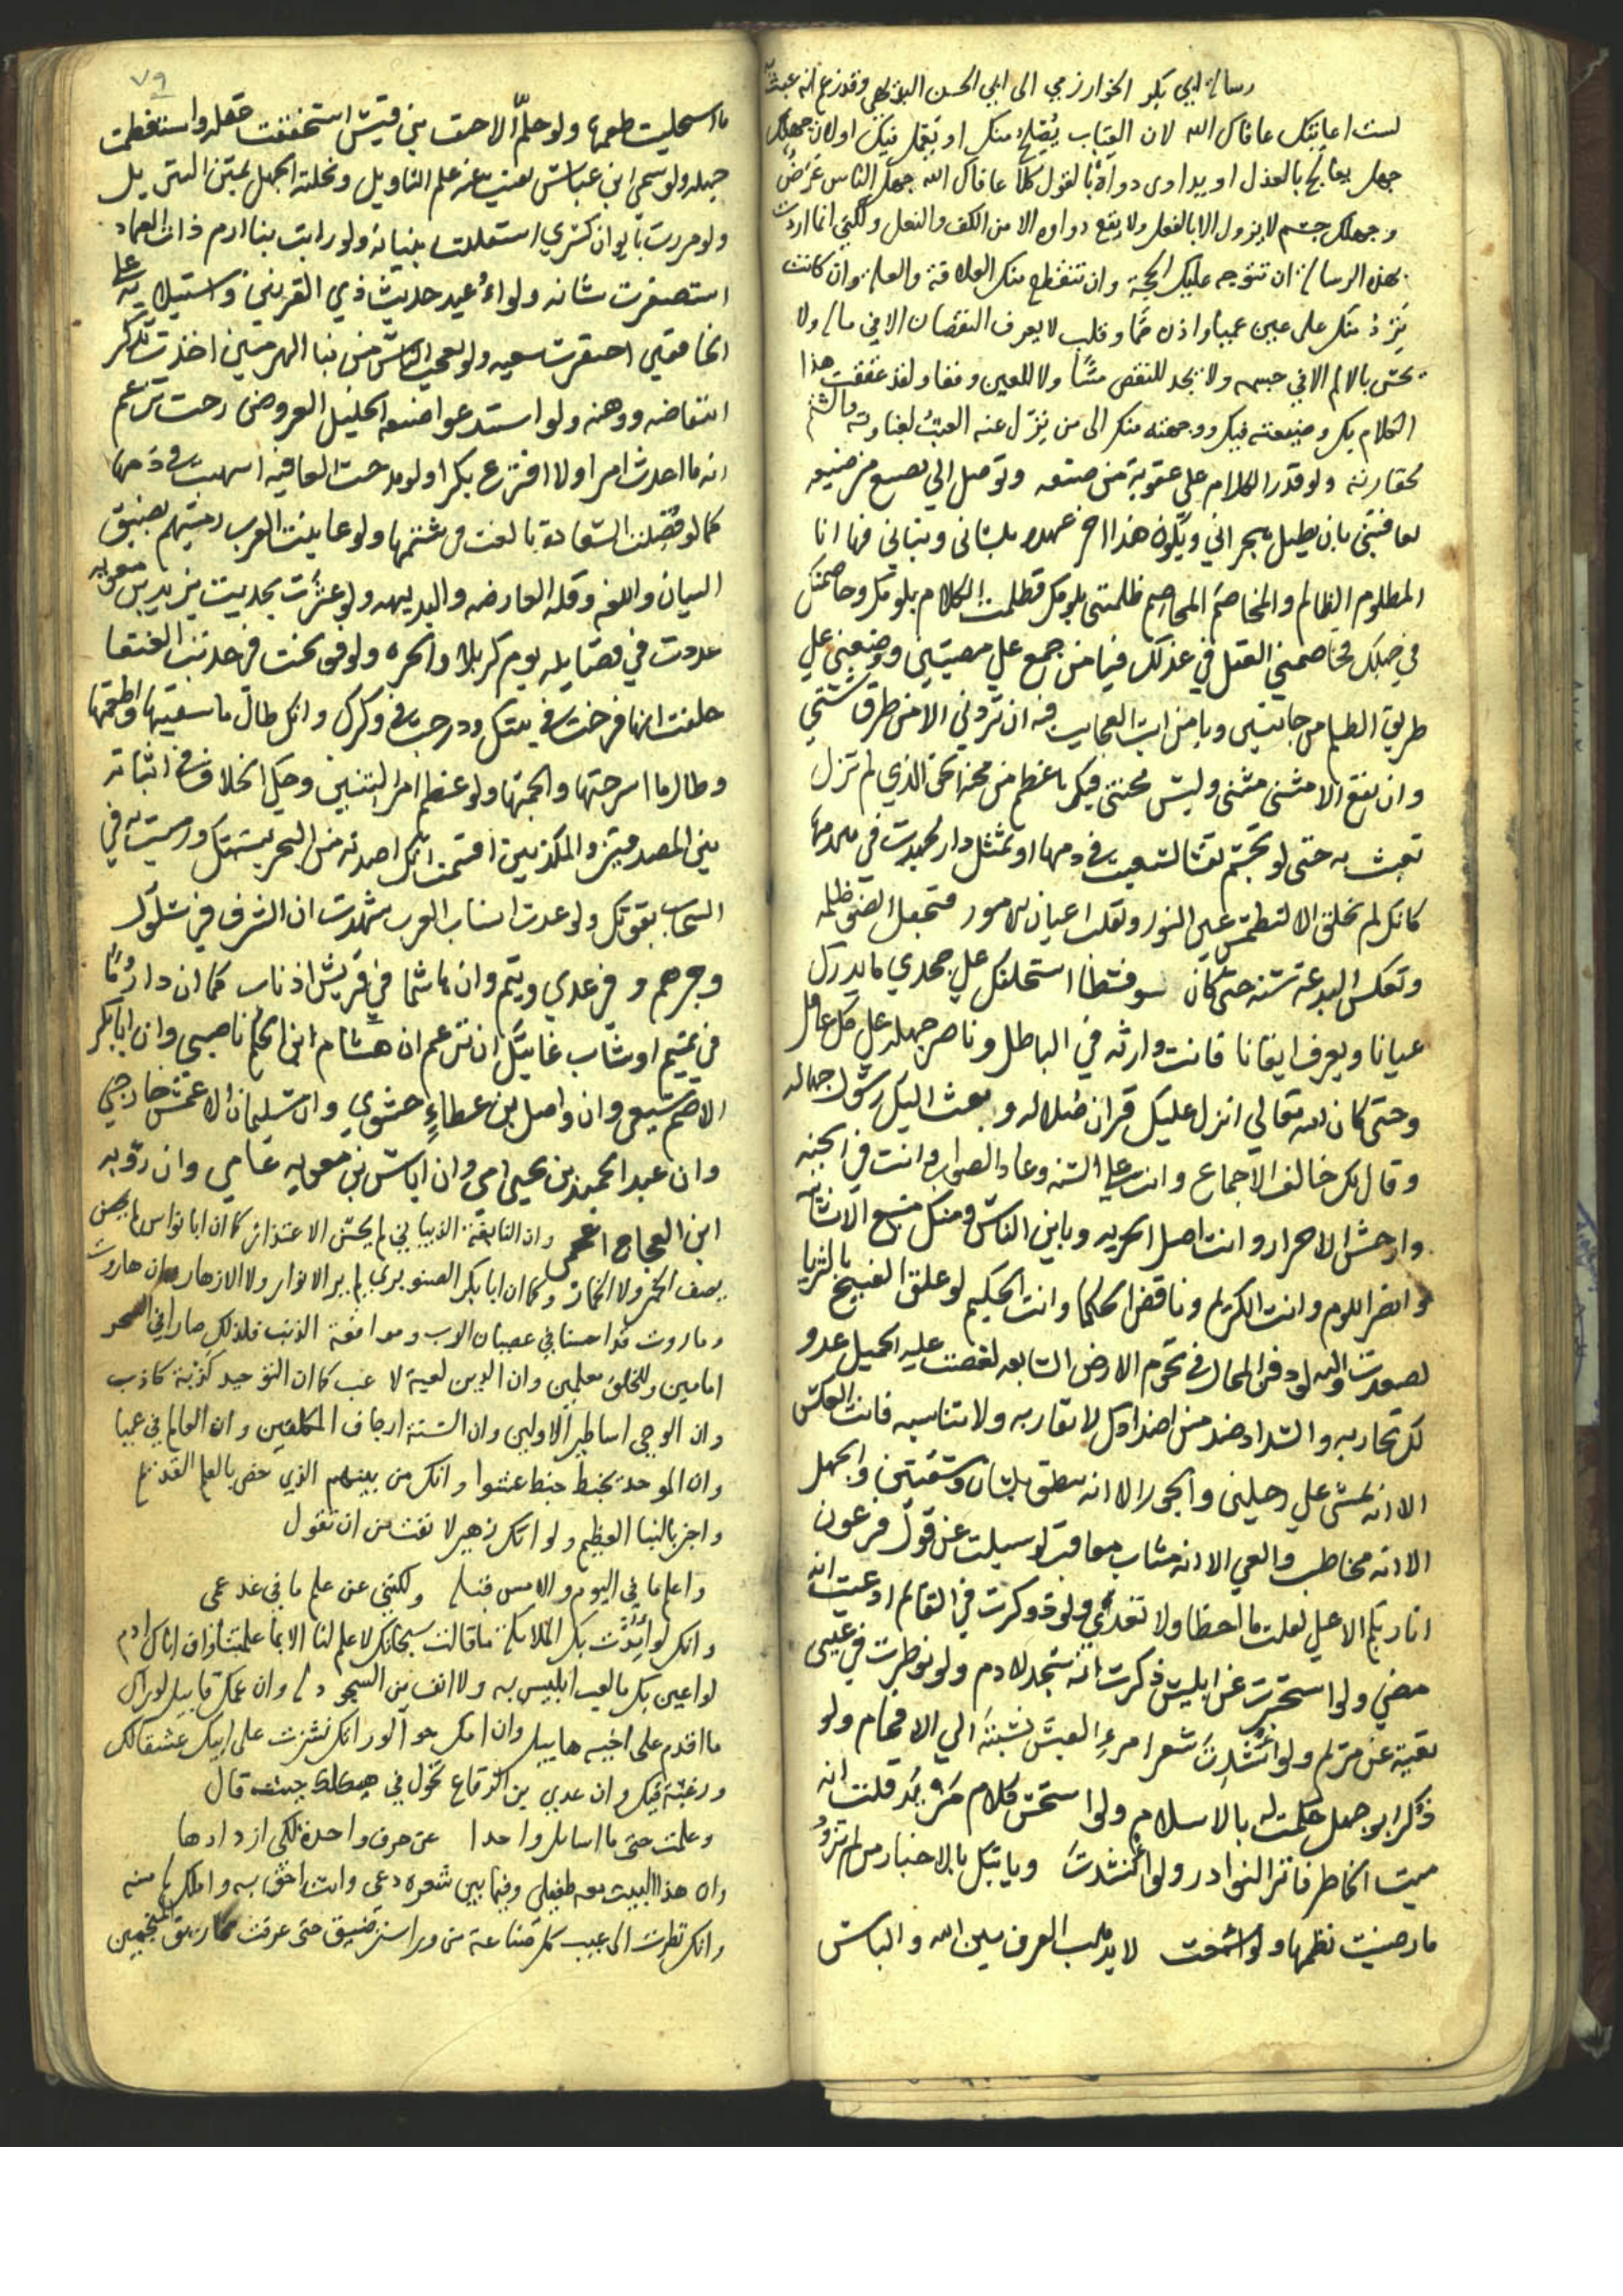 رسالة ابي بكر الخوارزمي الى ابي الحسن البديهي وقد زعم انه عبث به
لست اعاتبك عافاك الله لان العتاب يصلح منك او يعمل فيك اولان جهلك
جهل يعالج بالعذل او يداوى دواؤه بالقول كلا عافاك الله جهل الناس عرض
وجهلك جسم لا يزول الا بالفعل ولا يقع دواوه الا من الكف والنعل ولكني انما اردت
بهذه الرسالة ان تتوجه عليك الحجة وان تنقطع منك العلاقة والعلة وان كانت
ترد منك على عين عمياء واذن صماء وقلب لا يعرف النقصان الا في ماله ولا
يحس بالالم الا في جسمه ولا يجد للنقص مسا ولا للعين وقعا ولقد عققت هذا
الكلام بك وضيعته فيك ووجهته منك الى من ينزل عنه العتب لغباوته والشتم
لحقارته ولو قدر الكلام على عقوبة من صنعه وتوصل الى بصيع من ضيعه
لعاقبني بان يطيل هجراني ويكون هذا اخر عهده بلساني وبناني فها انا
المطلوم الظالم والمخاصم المخاصم ظلمتني بلومك فظلمت الكلام بلومك وخاصمتك
في جهلك فخاصمني العقل في عذلك فيا من جمع علي مصيبتين ووضعني على
طريق الظلم من جانبين ويا من ابت العجايب فيه ان تردني الا من طرق شتى
وان تقع الا مثنى مثنى وليس محنتي فيك باعظم من محنة الحق الذي لم تزل
تعبث به حتى لو تجسم لقنا لسعيت في دمها او تمثل دارا لجهدت في هدمها
كانك لم تخلق الا لتطمس عين النور وتقلب اعيان الامور فتجعل الضو ظلمة
وتعكس البدعة سنة حتى كان سوفسطا استخلفك على جحدي ما يدرك
عيانا ويعرف ايقانا فانت وارثه في الباطل وناصر جهله على كل عاقل
وحتى كان الله تعالى انزل عليك قران ضلاله وبعث اليك رسول جهاله
وقال لك خالف الاجماع وانت على السنة وعاد الصواب وانت في الجنه
واوحش الاحرار وانت اصل الحرية وباين الناس ومنك منبع الانسانية
وانصر اللوم وانت الكريم وناقض الحكما وانت الحكيم لو علق القبيح بالثريا
لصعدت اليه ولو دفن المحال في تخوم الارض السابعه لغصت عليه الجميل عدو
لك تحاربه والسداد ضد من اضدادك لا تقاربه ولا تناسبه فانت العكس
الا انه يمشي على رجلين والجور الا انه ينطق بلسان وشفتين والجهل
الا انه مخاطب والعي الا انه مثاب معاقب لو سيلت عن قول فرعون
انا ربكم الاعلى لقلت ما اخطا ولا تعدى ولو ذوكرت في القايم ادعيت انه
مضى ولو استخبرت عن ابليس ذكرت انه سجد لادم ولو نوظرت في عيسى
نفيته عن مريم ولو انشدت شعر امرء القيس نسبته الى الافحام ولو
ذكر ابو جهل حكمت له بالاسلام ولو استحسن كلام مزبد قلت انه
ميت الخاطر فاتر النوادر ولو انشدت وياتيك بالاخبار من لم تزود
ما رضيت نظمها ولو اسمعت لا يذهب العرف بين الله والناس
٧٩
ما استحليت طعمها ولو حلم الاحنف بن قيس استخففت عقله واستفظعت
جهله ولو سمي ابن عباس لفيت عنه علم التاويل ونحلته الجهل بمتن التنزيل
ولو مررت بايوان كسرى استقللت بنيانه ولو رايت بنا ارم ذات العماد
استصغرت شانه ولو اعيد حديث ذي القرنين واستيلايه على
الخافقين احتقرت سعيه ولو تعجب الناس من بنا الهرمين اخذت تذكر
انتقاضه ووهنه ولو استدعوا ضيعه الخليل العروض رحت تزعم
انه ما احدث امرا ولا افترع بكرا ولو مدحت العافية اسهبت في ذمها
كما لو فضلت السعادة بالغت في شتمها ولو عاينت العرب رميتهم بضيق
البيان واللغه وقلة العارضه والبديهه ولو عثرت بحديث يزيد بن معويه
عددت في فضايله يوم كربلا والحره ولو فوتحت في حديث العنقا
حلفت انها فرخت في بيتك ودرجت في وكرك وانك طال ما سقيتها واطعمتها
وطال ما اسرجتها والجمتها ولو عظم امر التنين وحكي الخلاف في اثباته
بين المصدقين والمكذبين اقسمت انك اصدته من البحر بسهمك ورميت به في
السحاب بقوتك ولو عدت انساب العرب شهدت ان الشرف في سلول
وجرهم وفي عدي وتيم وان هاشما في قريش اذناب كما ان دارما
في تميم اوشاب غايتك ان تزعم ان هشام ابن الحكم ناصبي وان ابا بكر
الاصم شيعي وان واصل بن عطاء حشوي وان سليمان الاعمش خارجي
وان عبد الحميد بن يحيى امي وان اياس بن معويه عامي وان روبه
ابن العجاج اعجمي وان النابغة الذبياني لم يحسن الاعتذار كما ان ابا نواس لم يحسن
يصف الخمر ولا الخمار وكما ان ابا بكر الصنوبري لم ير الانوار ولا الازهار وان هاروت
وماروت قد احسنا في عصيان الرب ومواقعة الذنب فلذلك صارا في السحر
امامين وللخلق معلمين وان الدين لعبة لاعب كما ان التوحيد كذبة كاذب
وان الوحي اساطير الاولين وان السنة ارجاف المكلفين وان العالم في عميا
وان الموحد يخبط خبط عشوا وانك من بينهم الذي خص بالعلم القديم
واخبر بالنبا العظيم ولو انك زهير لانفت من ان تقول
واعلم ما في اليوم والامس قبله ولكنني عن علم ما في غد عمى
وانك لو ايدت بك الملايكة ما قالت سبحانك لا علم لنا الا بما علمتنا وان اباك ادم
لو اعين بك ما لعب ابليس به ولا انف من السجود له وان عمك قابيل لو راك
ما اقدم على اخيه هابيل وان امك حوا لو راتك نشزت على ابيك عشقا لك
ورغبة فيك وان عدي بن الرقاع تحول في هيكلك حيث قال
وعلمت حتى ما اسايل واحدا عن حرف واحدة لكي ازدادها
وان هذا البيت معه طفيلي وفيما بين شعره دعي وانت احق به واملك له منه
وانك نظرت الى عيب كل صناعة من ورا ستر ضيق حتى عرفت مخاريق المنجمين